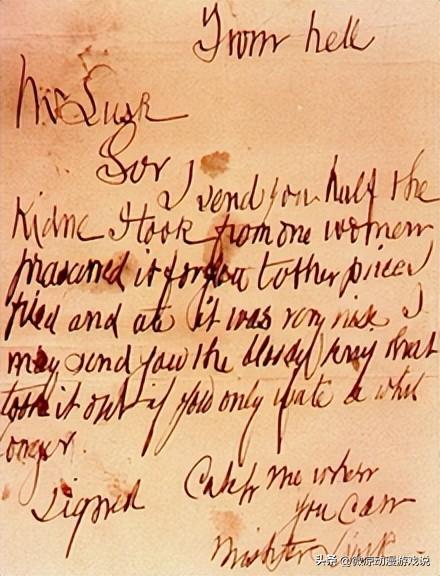 From hell
Mr Lusk
Sor
I send you half the
Kidne I took from one women
prasarved it for you tother piece I
fried and ate it was very nise I
may send you the bloody knif that
took it out if you only wate a whil
longer.
signed
Catch me when
you can
Mishter Lusk
头条 @微凉动漫游戏说